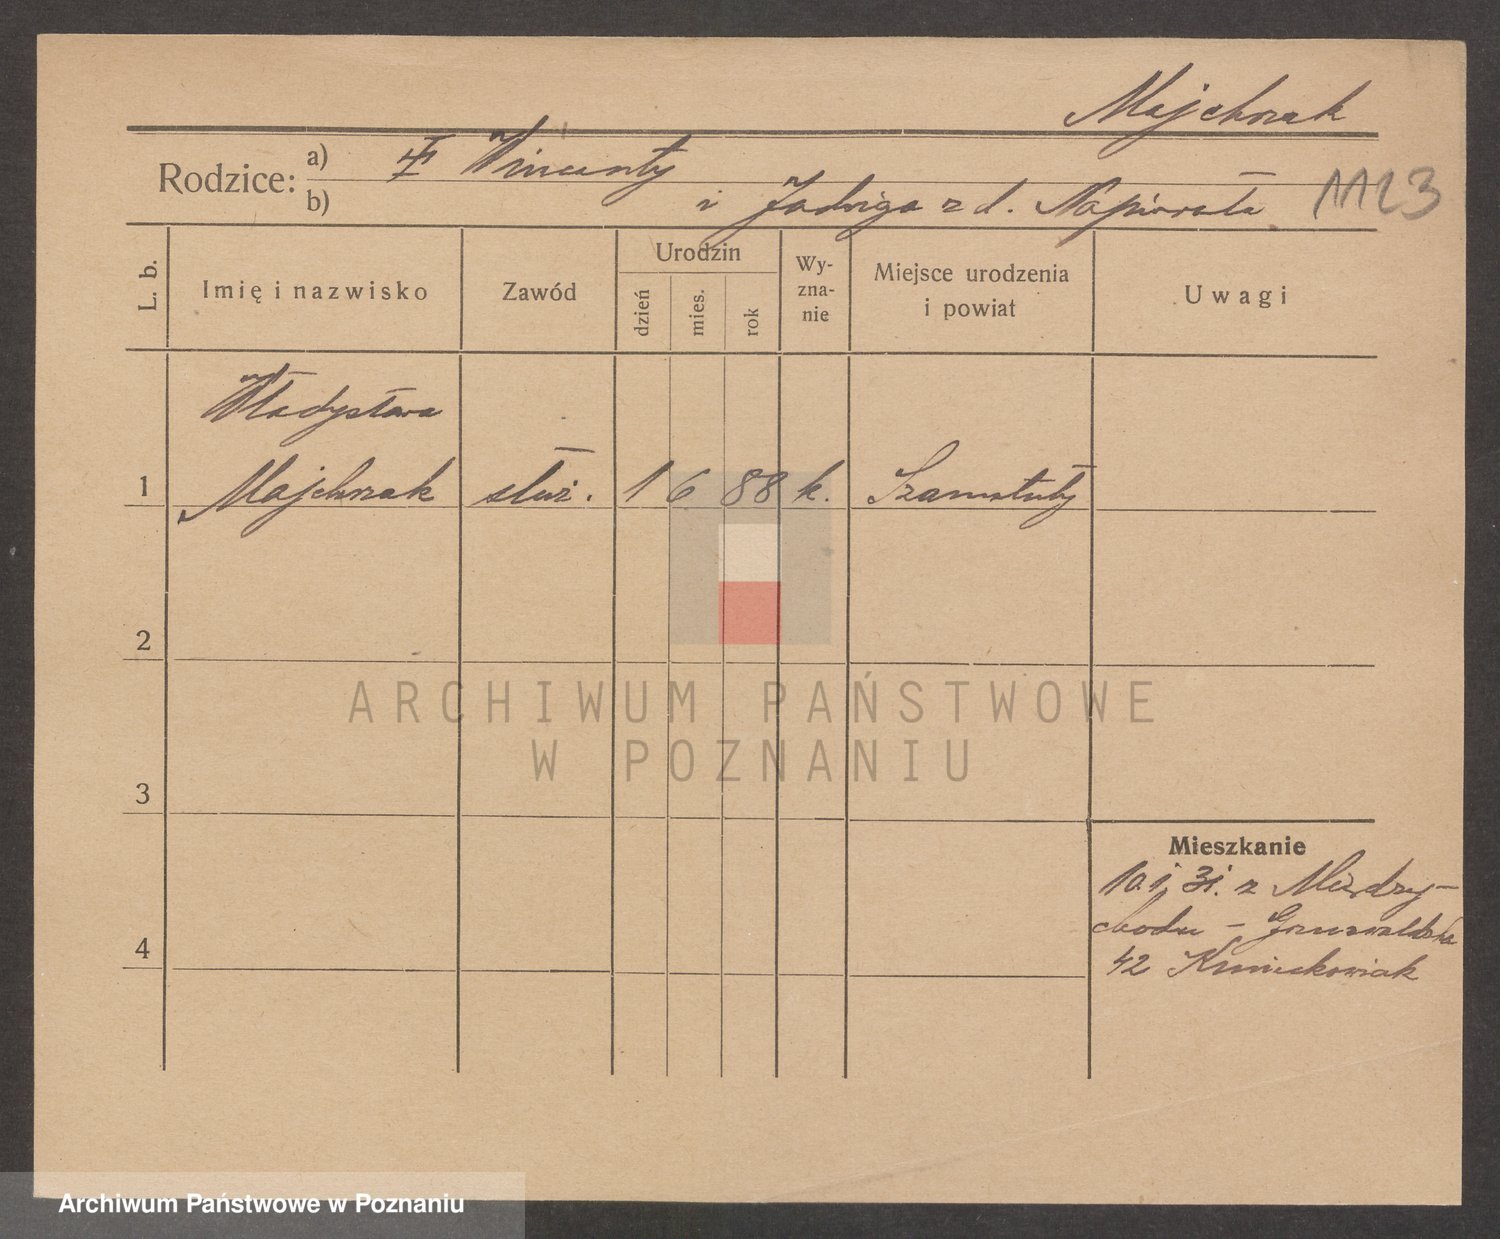 Majchrzak
Rodzice: a) Wincenty
b) i Jadwiga z d. Napierała
1123
L. b.
Imię i nazwisko
Zawód
Urodzin
dzień
mies.
rok
Wy-
zna-
nie
Miejsce urodzenia
i powiat
Uwagi
Władysława
1 Majchrzak służ. 1 6 88 k. Szamotuły
2
3
4
Mieszkanie
z Między-
chodu - Grunwaldzka
42
ARCHIWUM PAŃSTWOWE
W POZNANIU
Archiwum Państwowe w Poznaniu